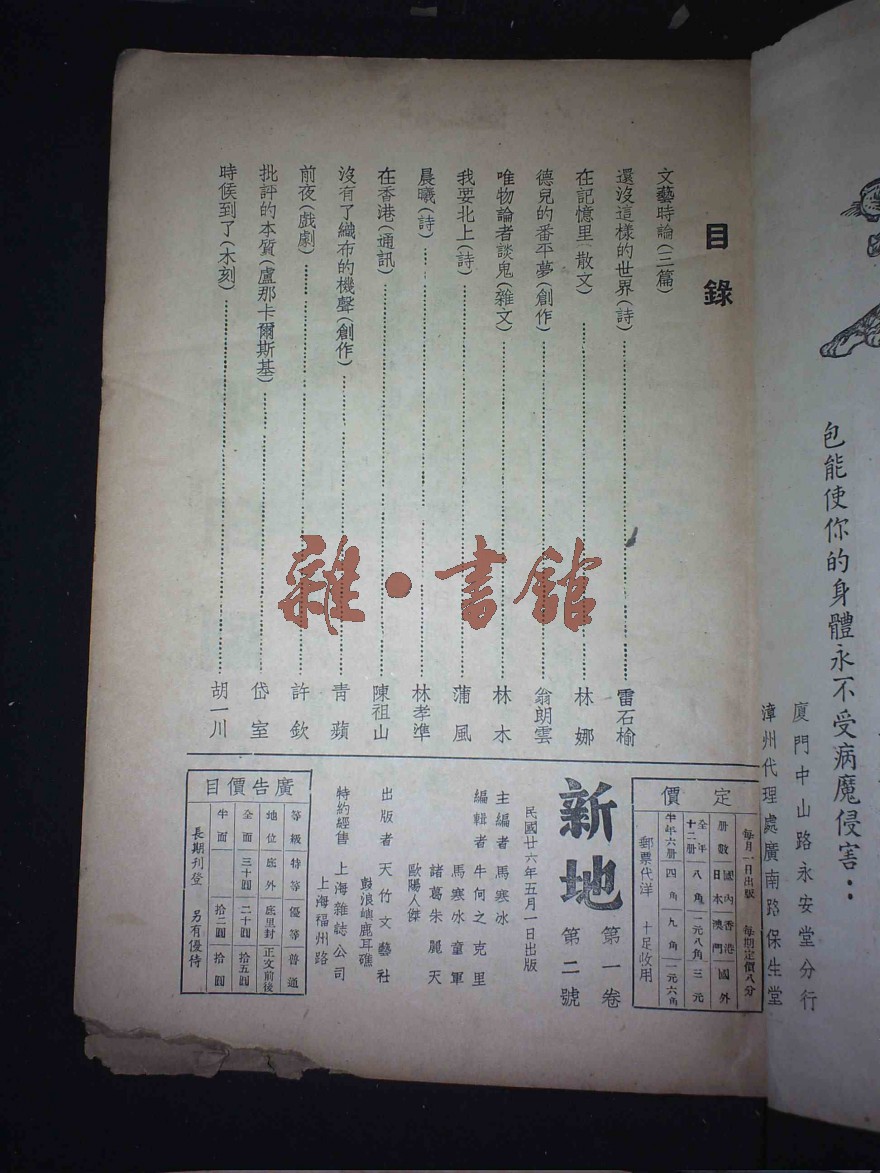 目錄
文藝時論(三篇)
還沒這樣的世界(詩)……雷石榆
在記憶里(散文)……林娜
德兒的番平夢(創作)……翁朗雲
唯物論者談鬼(雜文)……林木
我要北上(詩)……蒲風
晨曦(詩)……林孝準
在香港(通訊)……陳祖山
沒有了織布的機聲(創作)……青蘋
前夜(戲劇)……許欽
批評的本質(盧那卡爾斯基)……岱室
時侯到了(木刻)……胡一川
定價
每月一日出版 每期定價八分
冊數 國內日本 香港澳門 國外
全年十二冊 八角 一元八角 三元
半年六冊 四角 九角 一元六角
郵票代洋 十足收用
新地
第一卷
第二號
民國廿六年五月一日出版
主編者 馬寒冰
編輯者 牛何之克里
馬寒冰童軍
諸葛朱麗天
歐陽人傑
出版者 天竹文藝社
鼓浪嶼鹿耳礁
特約經售 上海雜誌公司
上海福州路
廣告價目
等級 特等 優等 普通
地位 底外 底里封 正文前後
全面 三十圓 二十圓 拾五圓
半面 拾二圓 拾圓
長期刊登 另有優待
包能使你的身體永不受病魔侵害：
廈門中山路永安堂分行
漳州代理處廣南路保生堂
雜·書館